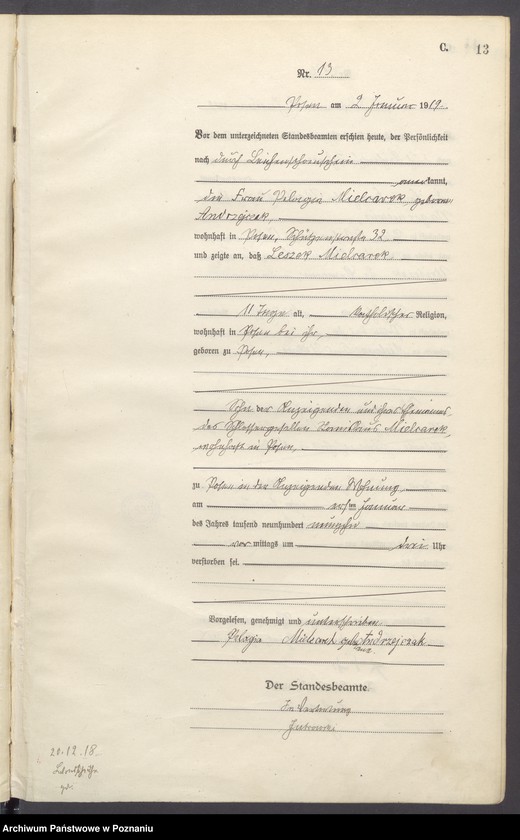 C.
13
Nr. 13
Posen am 2 Januar 1919.
Vor dem unterzeichneten Standesbeamten erschien heute, der Persönlichkeit
nach durch Leichenschauschein
anerkannt,
die Frau Pelagia Mielcarek geborene
Andrzejczak,
wohnhaft in Posen, Schützenstraße 32
und zeigte an, daß Leszek Mielcarek
11 Tage alt, katholischer Religion,
wohnhaft in Posen bei ihr,
geboren zu Posen,
Sohn der Anzeigenden und ihres Ehemannes
des Schlossergesellen Mielcarek,
wohnhaft in Posen,
zu Posen in der Anzeigenden Wohnung
am ersten Januar
des Jahres tausend neunhundert neunzehn
vor mittags um drei Uhr
verstorben sei.
Vorgelesen, genehmigt und unterschrieben
Pelagia Mielcarek geb. Andrzejczak
Der Standesbeamte.
In Vertretung
20.12.18.
Archiwum Państwowe w Poznaniu